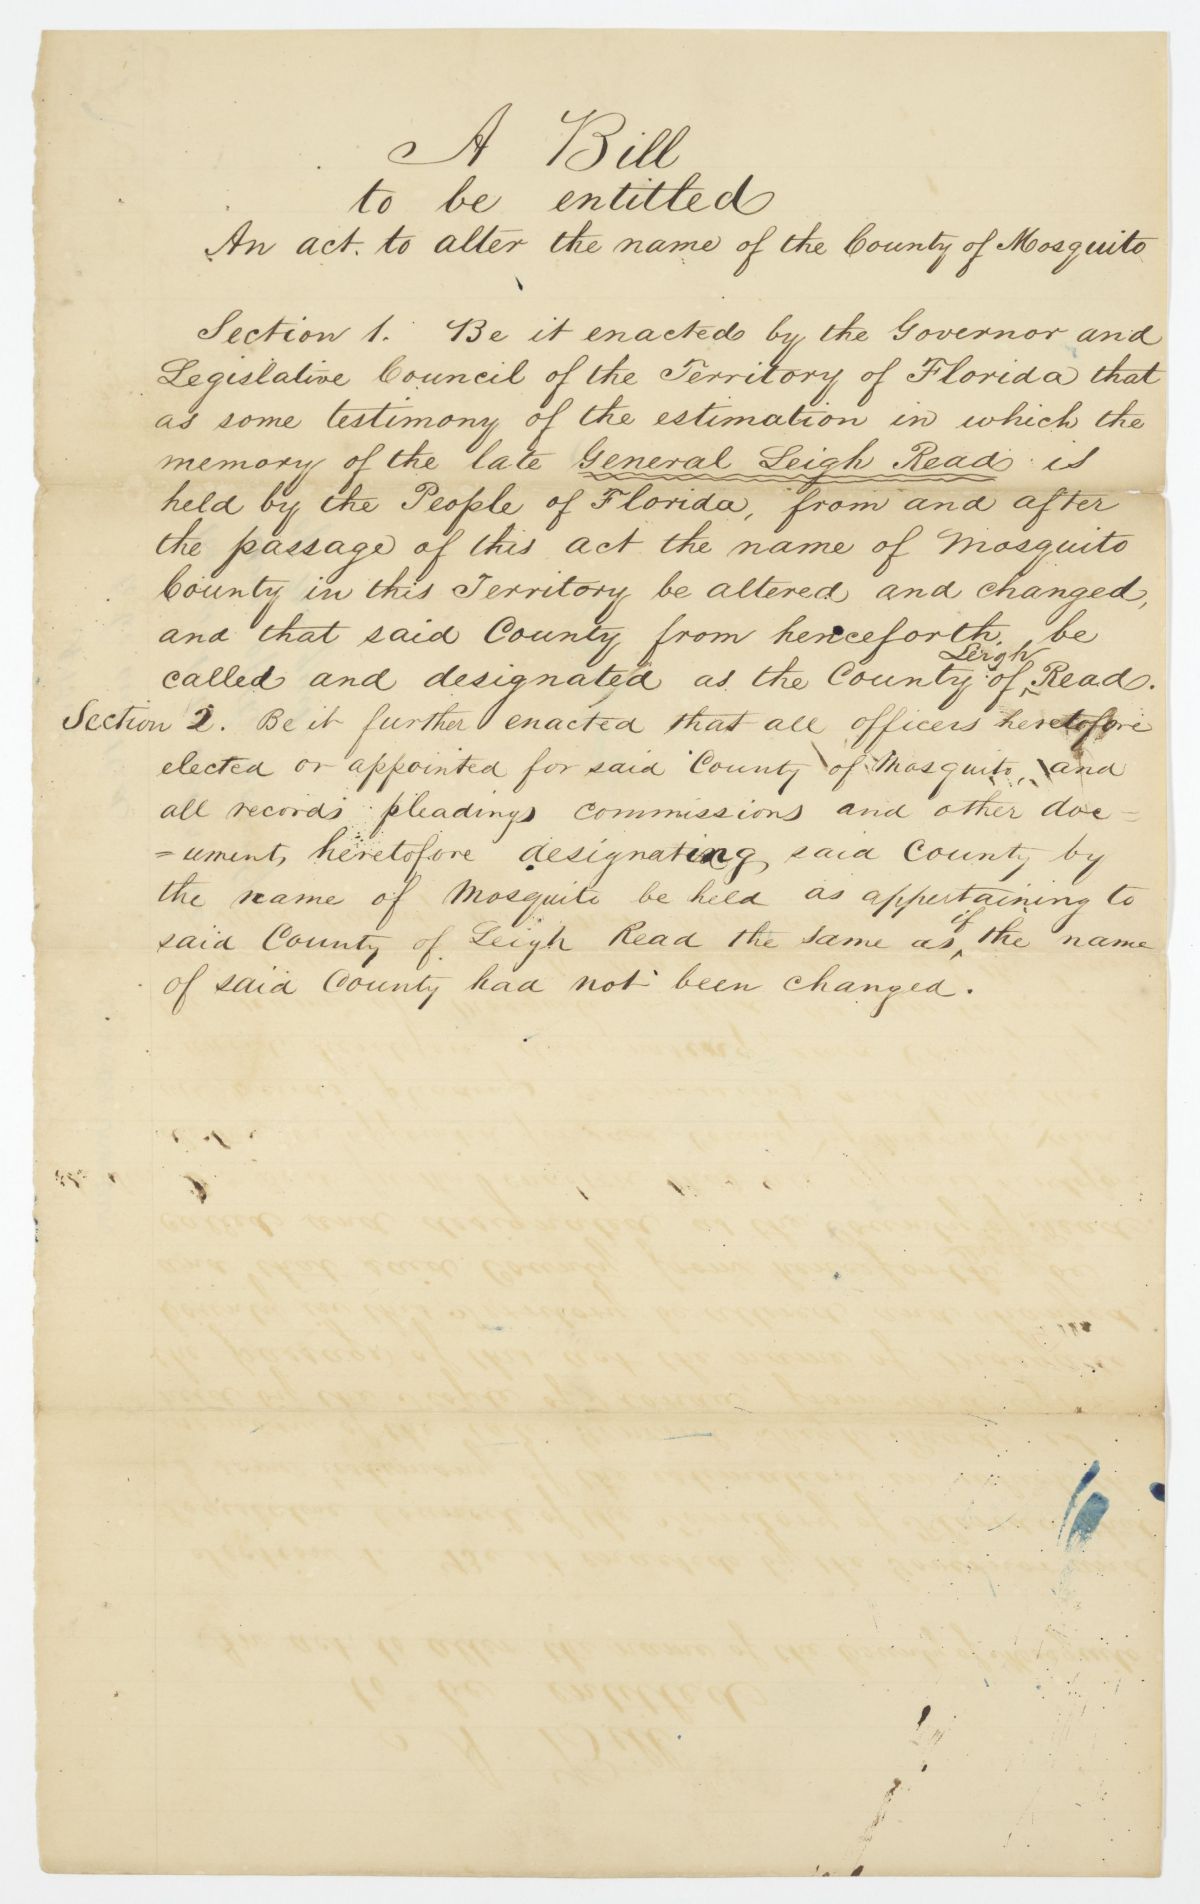 A Bill
to be entitled
An act. to alter the name of the County of Mosquito
Section 1. Be it enacted by the Governor and
Legislative Council of the Territory of Florida that
as some testimony of the estimation in which the
memory of the late General Leigh Read is
held by the People of Florida, from and after
the passage of this act the name of Mosquito
County in this Territory be altered and changed,
and that said County from henceforth be
called and designated as the County of Leigh Read.
Section 2. Be it further enacted that all officers heretofore
elected or appointed for said County of Mosquito, and
all records pleadings commissions and other doc=
=uments heretofore designating said County by
the name of Mosquito be held as appertaining to
said County of Leigh Read the same as if the name
of said County had not been changed.